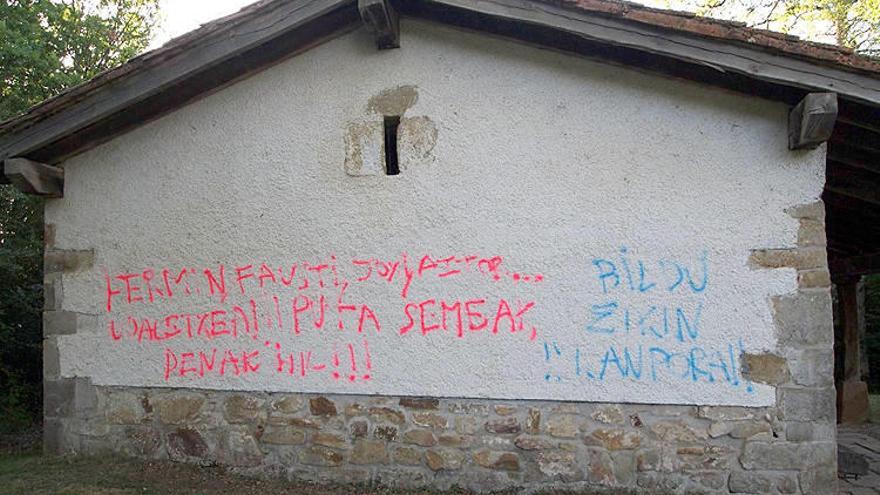 FERMIN, FAUSTI, JOXI, AITOR...
UDALTXEAN!! PUTA SEMEAK,
DENAK HIL!!!
BILDU
ZIKIN
!! KANPORA!!